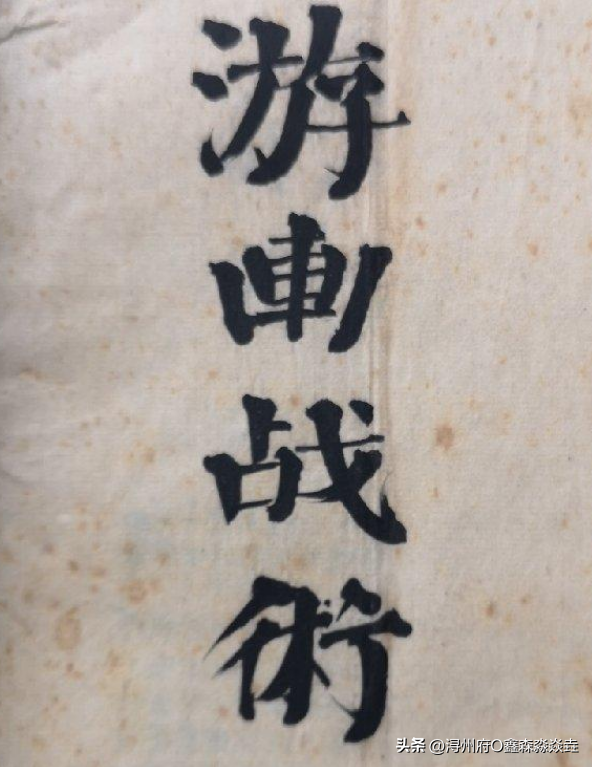 游击战術
头条 @浔州府O鑫森淼焱垚